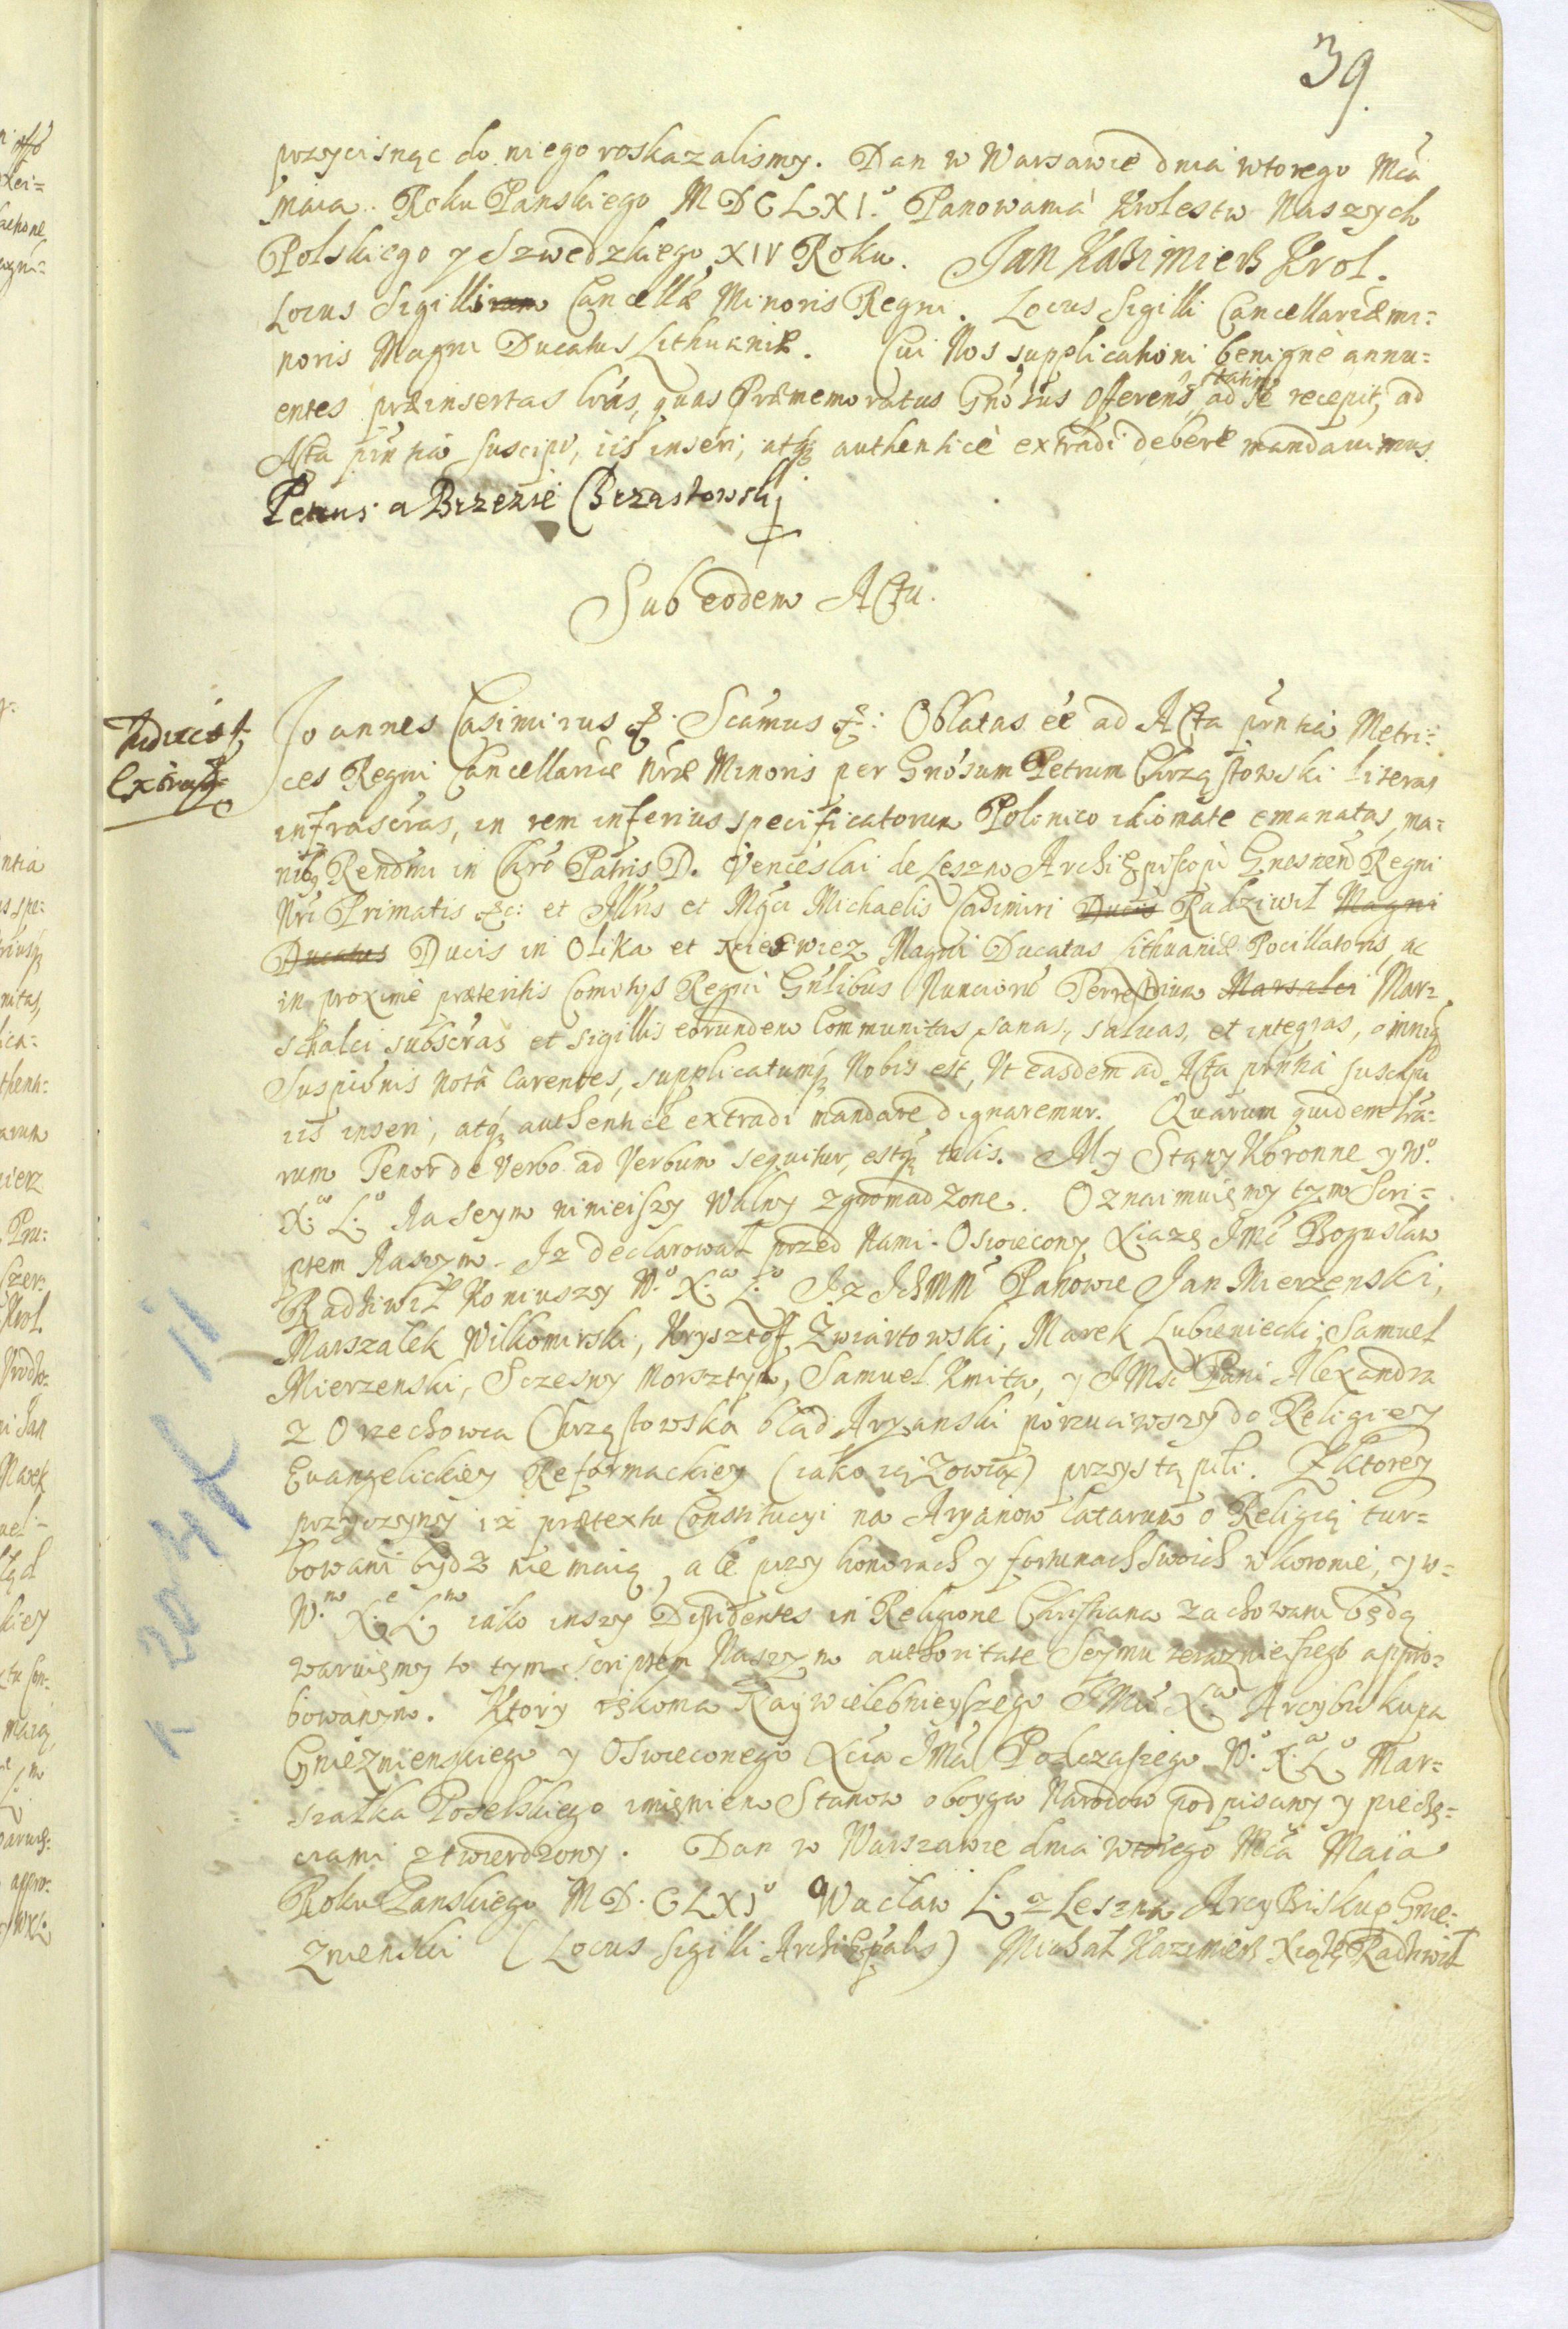 39.
przycisnąc do niego roskazalismy. Dan w Warsawie dnia wtorego Mca
Maia. Roku Panskiego MDCLXI.º Panowania Krolestw Naszych
Polskiego y Szwedzkiego XIV Roku. Jan Kazimierz Krol.
Locus Sigilli Cancellæ Minoris Regni. Locus Sigilli Cancellariæ mi=
noris Magni Ducatus Lithuaniæ. Cui Nos supplicationi benignè annu=
entes præinsertas lras, quas Præmemoratus Gnosus Offerens, statim ad se recepit, ad
Acta pñntia suscipi, iis inseri, atq; authenticè extradi debere mandauimus
Petrus a Brzezie Chrzastowskj
Sub eodem Actu.
Joannes Casimirus &: Scamus &: Oblatas eê ad Acta pñntia Metri=
ces Regni Cancellariæ Nræ Minoris per Gnosum Petrum Chrząstowski literas
infrascras, in rem inferius specificatorum Polonico idiomate emanatas, ma=
nibq Rendmi in Chro Patris D. Venceslai de Leszno Archi Episcopi Gnesnen Regni
Nri Primatis &c: et Illris et Mgci Michaelis Casimiri Ducis Radziwił Magni
Ducatus Ducis in Olika et Niezwiez Magni Ducatus Lithuaniæ Pocillatoris, ac
in proximè præteritis Comitijs Regni Gnlibus Nunciorũ Terrestrium Marsalci Mar=
schalci subscras et sigillis eorundem Communitas, sanas, saluas, et integras, omniq
Suspicionis notâ Carentes, supplicatumq; Nobis est, Vt easdem ad Acta pñntia suscipi
iis inseri, atq; authenticè extradi mandare dignaremur. Quarum quidem lra=
rum Tenor de Verbo ad Verbum sequitur, estq; talis. My Stany Koronne y W.º
X: L: Na Seym ninieiszy Walny zgromadzone. Oznaimuięmy tym Scri=
ptem Naszym. Iz declarował przed Nami Oswiecony Xiaze Jmć Bogusław
Radziwił Koniuszy W.º X: L:º Iz Ichmm Panowie Jan Mierzenski,
Marszałek Wilkomirski, Krysztoff Zwiartowski, Marek Lubieniecki, Samuel
Mierzenski, Sczesny Morsztyn, Samuel Kmita, y JMsc Pani Alexandra
z Orzechowca Chrząstowska bład Aryanski porzuciwszy do Religiey
Euangelickiey Reformackiey (iako ią zowią) przystąpili. Z ktorey
przyczyny iz prætextu Constitucyi na Aryanow latarum o Religią tur=
bowani bydz nie maią, ale przy honorach y fortunach swoich w koronie, y w=
W.m X.e L.m iako inszy Dissidentes in Religione Christiana zachowani będą
waruięmy to tym scriptem Naszym authoritate Seymu terazniejszego appro=
bowanym. Ktory rękoma Nayẃielebnieyszego JMci Xa Arcybiskupa
Gnieznienskiego y Oswieconego Xcia JMci Podczaszego W.º X: L:º Mar=
szałka Poselskiego imięniem Stanow oboyga Narodow podpisany y pieczę=
ciami ztwierdzony. Dan w Warszawie dnia wtorego Mca Maia
Roku Panskiego MD.CLXIº Wacław L. z Leszna ArcyBiskup Gnie=
znienski (Locus Sigilli ArchiEpalis) Michał Kazimierz Xiążę Radziwił